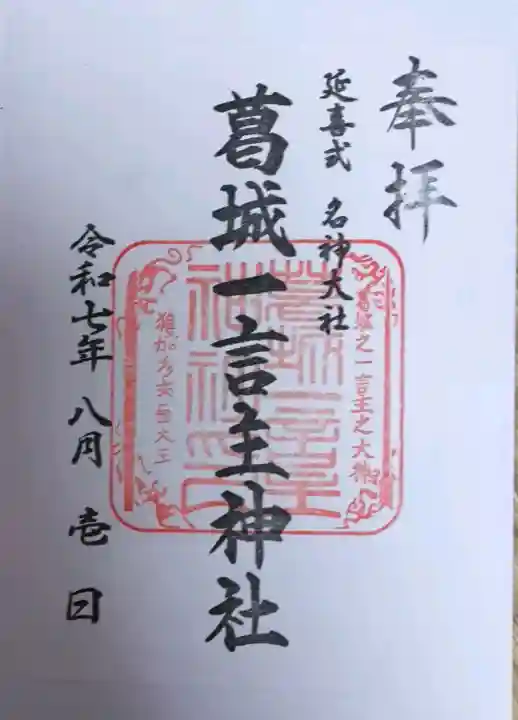 奉拝
延喜式 名神大社
葛城一言主神社
令和七年 八月 壱 日
葛城之一言主之大神